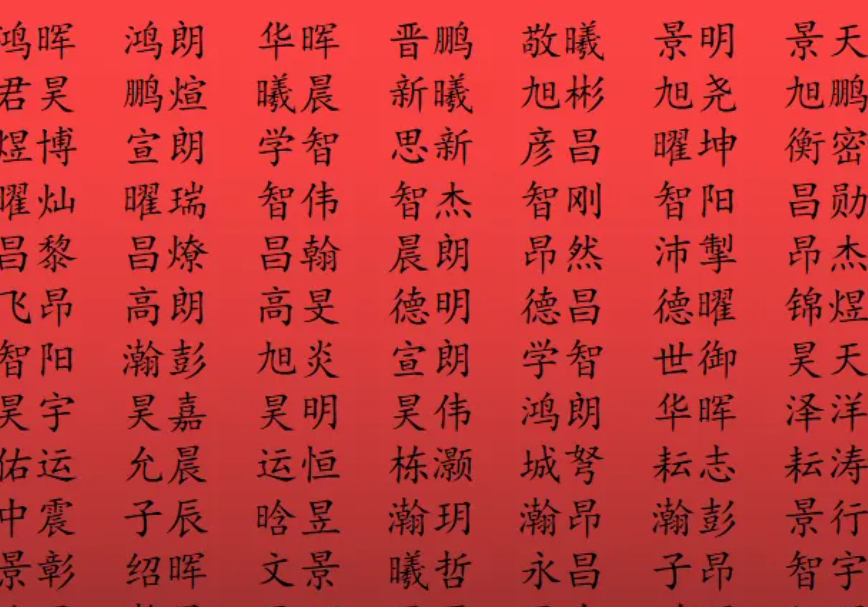 鸿晖 鸿朗 华晖 晋鹏 敬曦 景明 景天
君昊 鹏煊 曦晨 新曦 旭彬 旭尧 旭鹏
煜博 宣朗 学智 思新 彦昌 曜坤 衡密
曜灿 曜瑞 智伟 智杰 智刚 智阳 昌勋
昌黎 昌燎 昌翰 晨朗 昂然 沛掣 昂杰
飞昂 高朗 高旻 德明 德昌 德曜 锦煜
智阳 瀚彭 旭炎 宣朗 学智 世御 昊天
昊宇 昊嘉 昊明 昊伟 鸿朗 华晖 泽洋
佑运 允晨 运恒 栋灏 城弩 耘志 耘涛
中震 子辰 晗昱 瀚玥 瀚昂 瀚彭 景行
景彰 绍晖 文景 曦哲 永昌 子昂 智宇